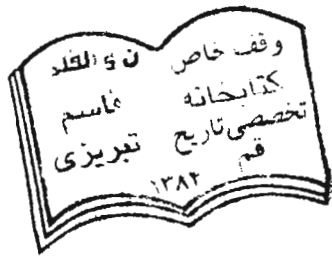 وقف خاص
کتابخانه
تخصصی تاریخ
قم
ن و القلم
قاسم
تبریزی
۱۳۸۲